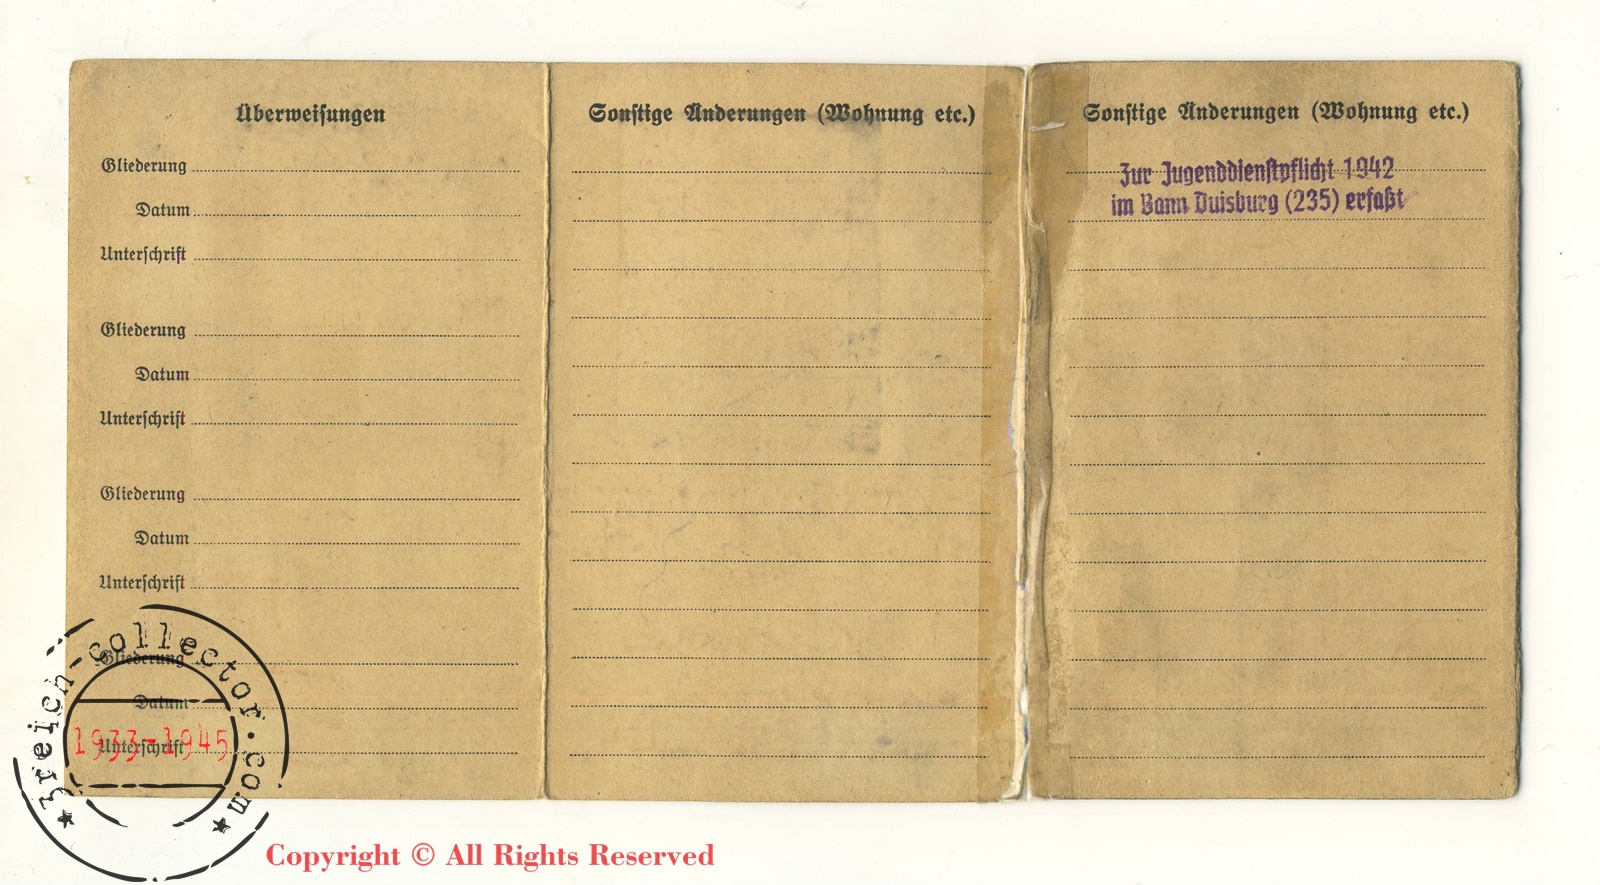 Überweisungen
Gliederung
Datum
Unterschrift
Gliederung
Datum
Unterschrift
Gliederung
Datum
Unterschrift
Gliederung
Datum
Unterschrift
Sonstige Änderungen (Wohnung etc.)
Sonstige Änderungen (Wohnung etc.)
Zur Jugenddienstpflicht 1942
im Bann Duisburg (235) erfaßt
3reich-collector.com
1933-1945
Copyright © All Rights Reserved